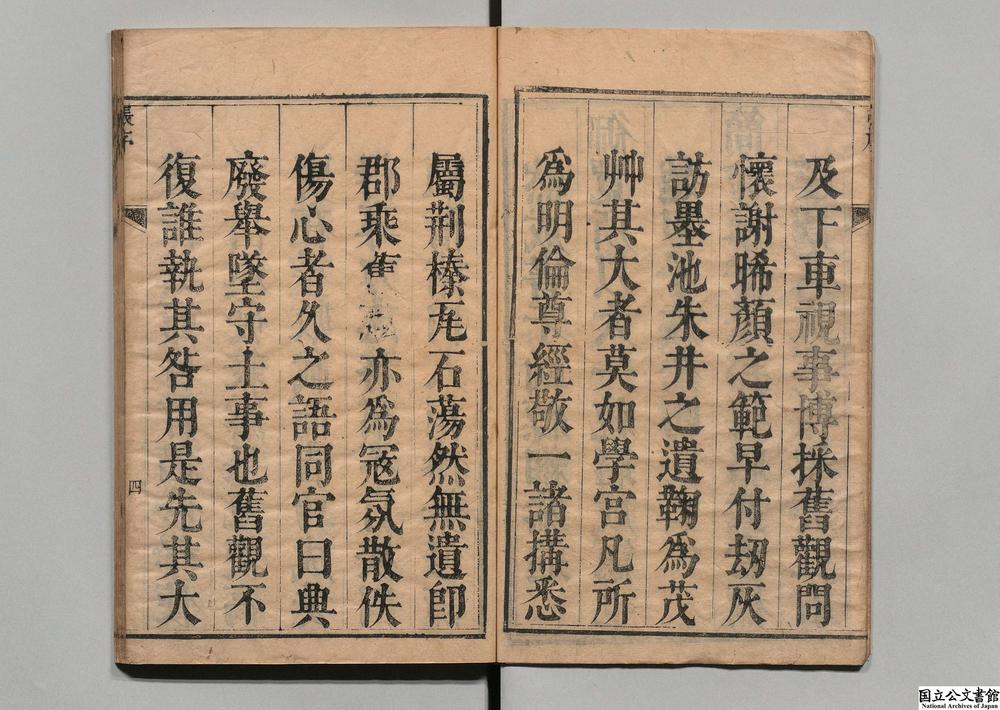 及下車視事博採舊觀問
懷謝晞顏之範早付刼灰
訪墨池朱井之遺鞠為茂
艸其大者莫如學宮凡所
為明倫尊經敬一諸搆悉
屬荆榛瓦石蕩然無遺即
郡乘舊亦為冦氛散佚
傷心者久之語同官曰典
廢舉墜守土事也舊觀不
復誰執其咎用是先其大
四
国立公文書館
National Archives of Japan